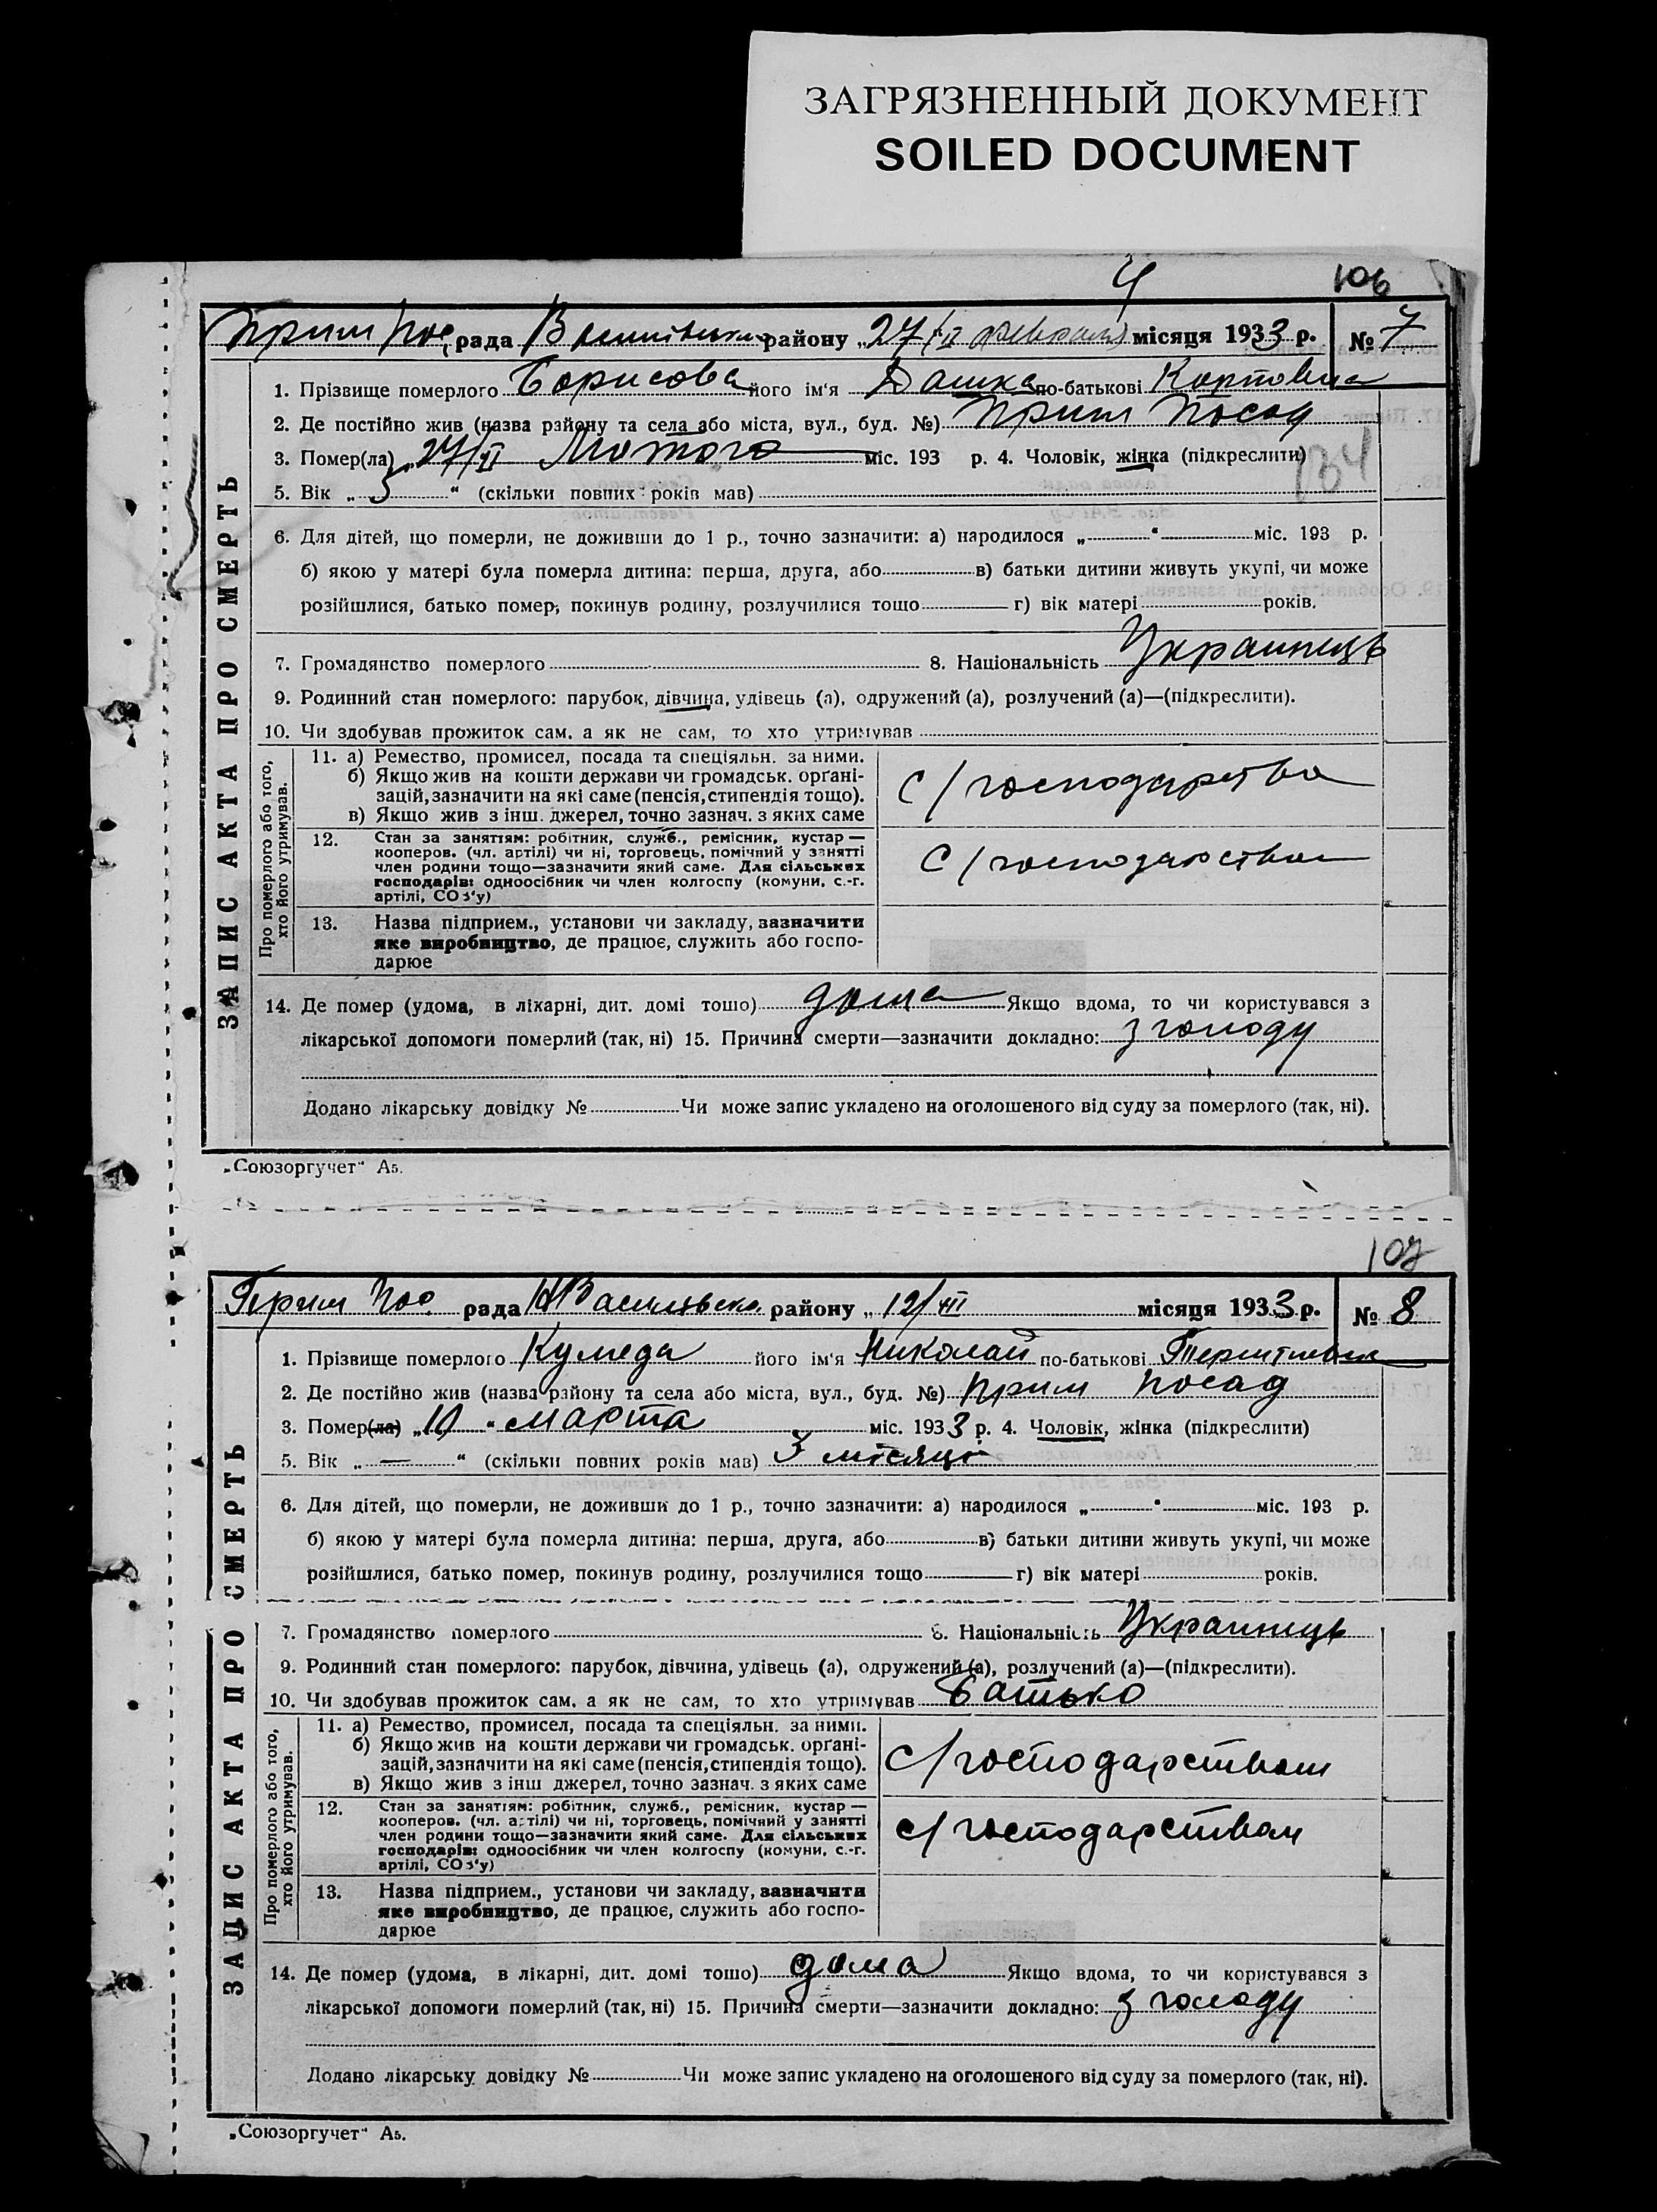 ЗАГРЯЗНЕННЫЙ ДОКУМЕНТ
SOILED DOCUMENT
4 106
Прим Пос рада района „27/II февраля місяця 1933 р. № 7
1. Прізвище померлого Борисова його ім'я Дашка по-батькові
2. Де постійно жив (назва району та села або міста, вул., буд. №) Прим Посад
3. Помер(ла) „27/II Лютого міс. 193 р. 4. Чоловік, жінка (підкреслити)
134
5. Вік „ 3 “ (скільки повних років мав)
6. Для дітей, що померли, не доживши до 1 р., точно зазначити: а) народилося „ “ міс. 193 р.
б) якою у матері була померла дитина: перша, друга, або в) батьки дитини живуть укупі, чи може
розійшлися, батько помер, покинув родину, розлучилися тощо г) вік матері років.
7. Громадянство померлого 8. Національність Украинець
9. Родинний стан померлого: парубок, дівчина, удівець (а), одружений (а), розлучений (а)—(підкреслити).
10. Чи здобував прожиток сам, а як не сам, то хто утримував
ЗАПИС АКТА ПРО СМЕРТЬ
Про померлого або того, хто його утримував.
11. а) Ремество, промисел, посада та спеціяльн. за ними.
б) Якщо жив на кошти держави чи громадськ. орґані-
зацій, зазначити на які саме (пенсія, стипендія тощо).
в) Якщо жив з інш. джерел, точно зазнач. з яких саме
с/господарства
12. Стан за заняттям: робітник, служб., ремісник, кустар—
кооперов. (чл. артілі) чи ні, торговець, помічний у занятті
член родини тощо—зазначити який саме. Для сільських
господарів: одноосібник чи член колгоспу (комуни, с.-г.
артілі, СОЗ'у)
с/господарством
13. Назва підприєм., установи чи закладу, зазначити
яке виробництво, де працює, служить або госпо-
дарює
14. Де помер (удома, в лікарні, дит. домі тощо) дома Якщо вдома, то чи користувався з
лікарської допомоги померлий (так, ні) 15. Причина смерти—зазначити докладно: з голоду
Додано лікарську довідку № Чи може запис укладено на оголошеного від суду за померлого (так, ні).
„Союзоргучет“ А5.
107
Прим Пос. рада району „ 12/III місяця 1933 р. № 8
1. Прізвище померлого Кумеда його ім'я Николай по-батькові
2. Де постійно жив (назва району та села або міста, вул., буд. №) Прим Посад
3. Помер(ла) „10 “ марта міс. 1933 р. 4. Чоловік, жінка (підкреслити)
5. Вік „ — “ (скільки повних років мав) 3 місяці
6. Для дітей, що померли, не доживши до 1 р., точно зазначити: а) народилося „ “ міс. 193 р.
б) якою у матері була померла дитина: перша, друга, або в) батьки дитини живуть укупі, чи може
розійшлися, батько помер, покинув родину, розлучилися тощо г) вік матері років.
7. Громадянство померлого 8. Національність Украинець
9. Родинний стан померлого: парубок, дівчина, удівець (а), одружений (а), розлучений (а)—(підкреслити).
10. Чи здобував прожиток сам, а як не сам, то хто утримував батько
ЗАПИС АКТА ПРО СМЕРТЬ
Про померлого або того, хто його утримував.
11. а) Ремество, промисел, посада та спеціяльн. за ними.
б) Якщо жив на кошти держави чи громадськ. орґані-
зацій, зазначити на які саме (пенсія, стипендія тощо).
в) Якщо жив з інш джерел, точно зазнач. з яких саме
с/господарством
12. Стан за заняттям: робітник, служб., ремісник, кустар—
кооперов. (чл. артілі) чи ні, торговець, помічний у занятті
член родини тощо—зазначити який саме. Для сільських
господарів: одноосібник чи член колгоспу (комуни, с.-г.
артілі, СОЗ'у)
с/господарством
13. Назва підприєм., установи чи закладу, зазначити
яке виробництво, де працює, служить або госпо-
дарює
14. Де помер (удома, в лікарні, дит. домі тощо) дома Якщо вдома, то чи користувався з
лікарської допомоги померлий (так, ні) 15. Причина смерти—зазначити докладно: з голоду
Додано лікарську довідку № Чи може запис укладено на оголошеного від суду за померлого (так, ні).
„Союзоргучет“ А5.